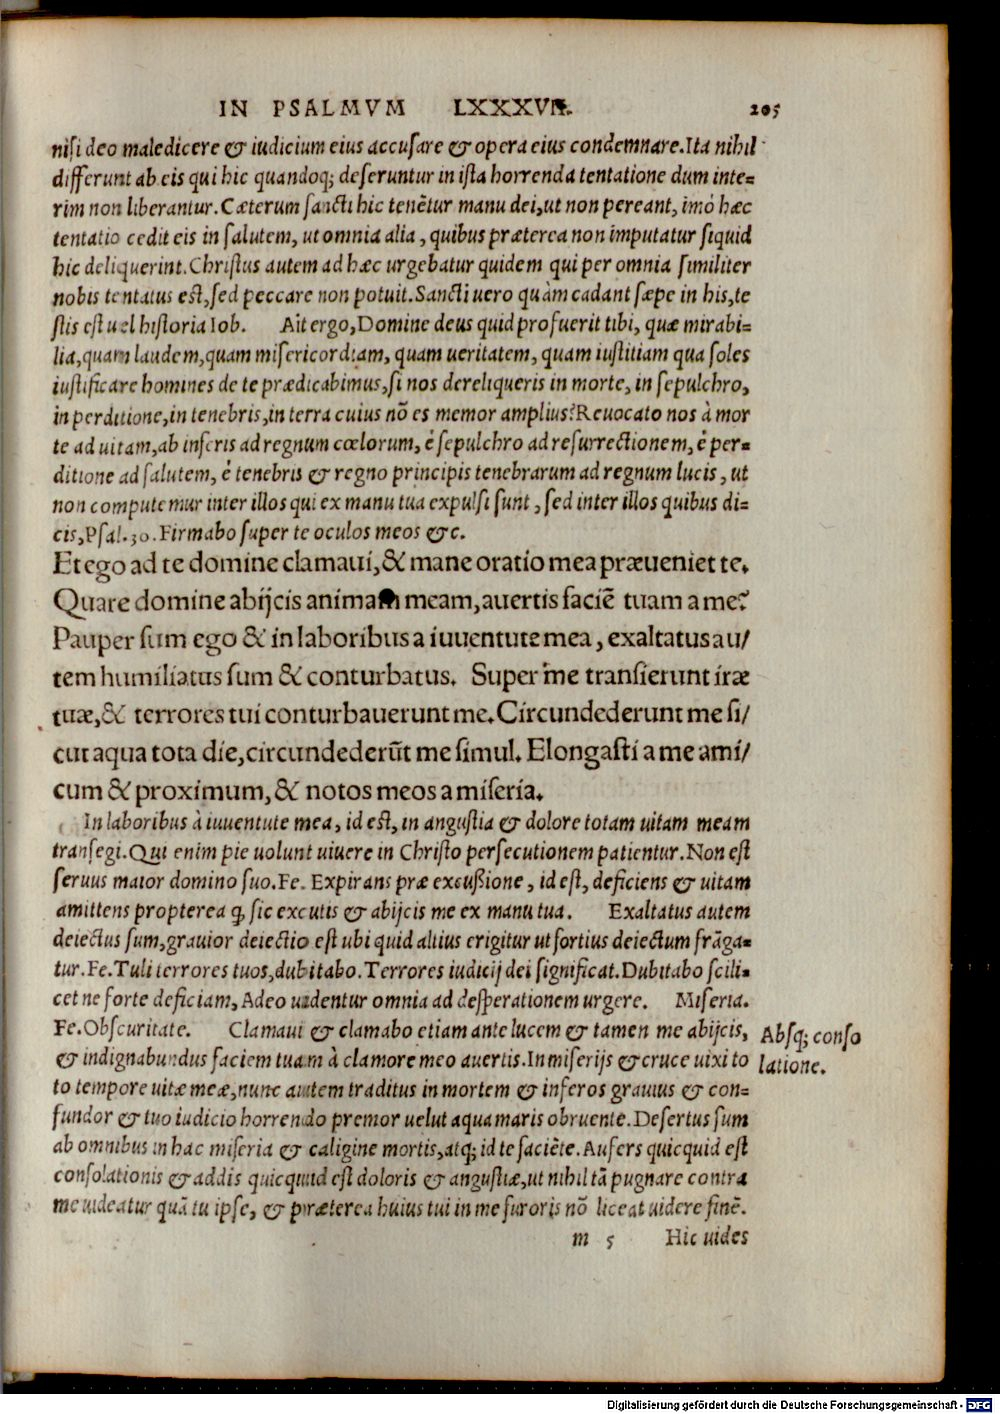 IN PSALMVM LXXXVII. 205
nisi deo maledicere & iudicium eius accusare & opera eius condemnare. Ita nihil
differunt ab eis qui hic quandoq; deseruntur in ista horrenda tentatione dum inte=
rim non liberantur. Cæterum sancti hic tenẽtur manu dei, ut non pereant, imò hæc
tentatio cedit eis in salutem, ut omnia alia, quibus præterea non imputatur siquid
hic deliquerint. Christus autem ad hæc urgebatur quidem qui per omnia similiter
nobis tentatus est, sed peccare non potuit. Sancti uero quàm cadant sæpe in his, te
stis est uel historia Iob. Ait ergo, Domine deus quid profuerit tibi, quæ mirabi=
lia, quam laudem, quam misericordiam, quam ueritatem, quam iustitiam qua soles
iustificare homines de te prædicabimus, si nos dereliqueris in morte, in sepulchro,
in perditione, in tenebris, in terra cuius nõ es memor amplius? Reuocato nos à mor
te ad uitam, ab inferis ad regnum cœlorum, è sepulchro ad resurrectionem, è per=
ditione ad salutem, è tenebris & regno principis tenebrarum ad regnum lucis, ut
non computemur inter illos qui ex manu tua expulsi sunt, sed inter illos quibus di=
cis, Psal. 30. Firmabo super te oculos meos &c.
Et ego ad te domine clamaui, & mane oratio mea præueniet te.
Quare domine abijcis animam meam, auertis faciẽ tuam a me?
Pauper sum ego & in laboribus a iuuentute mea, exaltatus au/
tem humiliatus sum & conturbatus. Super me transierunt iræ
tuæ, & terrores tui conturbauerunt me. Circundederunt me si/
cut aqua tota die, circundederũt me simul. Elongasti a me ami/
cum & proximum, & notos meos a miseria.
In laboribus à iuuentute mea, id est, in angustia & dolore totam uitam meam
transegi. Qui enim pie uolunt uiuere in Christo persecutionem patientur. Non est
seruus maior domino suo. Fe. Expirans præ excußione, id est, deficiens & uitam
amittens propterea q̃ sic excutis & abijcis me ex manu tua. Exaltatus autem
deiectus sum, grauior deiectio est ubi quid altius erigitur ut fortius deiectum frãga=
tur. Fe. Tuli terrores tuos, dubitabo. Terrores iudicij dei significat. Dubitabo scili=
cet ne forte deficiam, Adeo uidentur omnia ad desperationem urgere. Miseria.
Fe. Obscuritate. Clamaui & clamabo etiam ante lucem & tamen me abijcis,
& indignabundus faciem tuam à clamore meo auertis. In miserijs & cruce uixi to
to tempore uitæ meæ, nunc autem traditus in mortem & inferos grauius & con=
fundor & tuo iudicio horrendo premor uelut aqua maris obruente. Desertus sum
ab omnibus in hac miseria & caligine mortis, atq; id te faciẽte. Aufers quicquid est
consolationis & addis quicquid est doloris & angustiæ, ut nihil tã pugnare contra
me uideatur quã tu ipse, & præterea huius tui in me furoris nõ liceat uidere finẽ.
Absq; conso
latione.
m 5 Hic uides
Digitalisierung gefördert durch die Deutsche Forschungsgemeinschaft - DFG